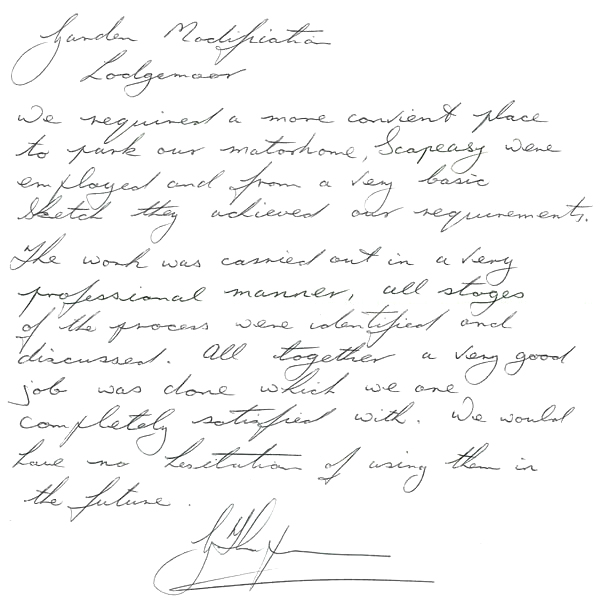 Garden Modification
Lodgemoor
We required a more convient place
to park our motorhome, Scapeasy were
employed and from a very basic
sketch they achieved our requirements.
The work was carried out in a very
professional manner, all stages
of the process were identified and
discussed. All together a very good
job was done which we are
completely satisfied with. We would
have no hesitation of using them in
the future.